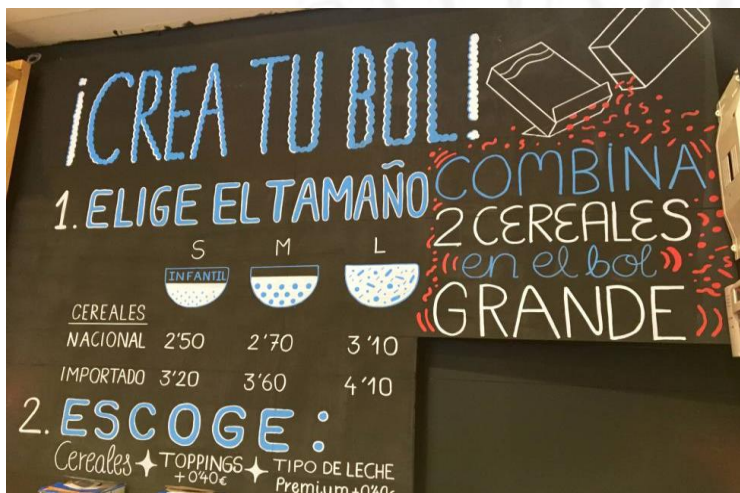 ¡CREA TU BOL!
1. ELIGE EL TAMAÑO
S M L
INFANTIL
CEREALES
NACIONAL 2'50 2'70 3'10
IMPORTADO 3'20 3'60 4'10
COMBINA
2 CEREALES
en el bol
GRANDE
2. ESCOGE:
Cereales + TOPPINGS + TIPO DE LECHE
+0'40€
Premium +0'40€